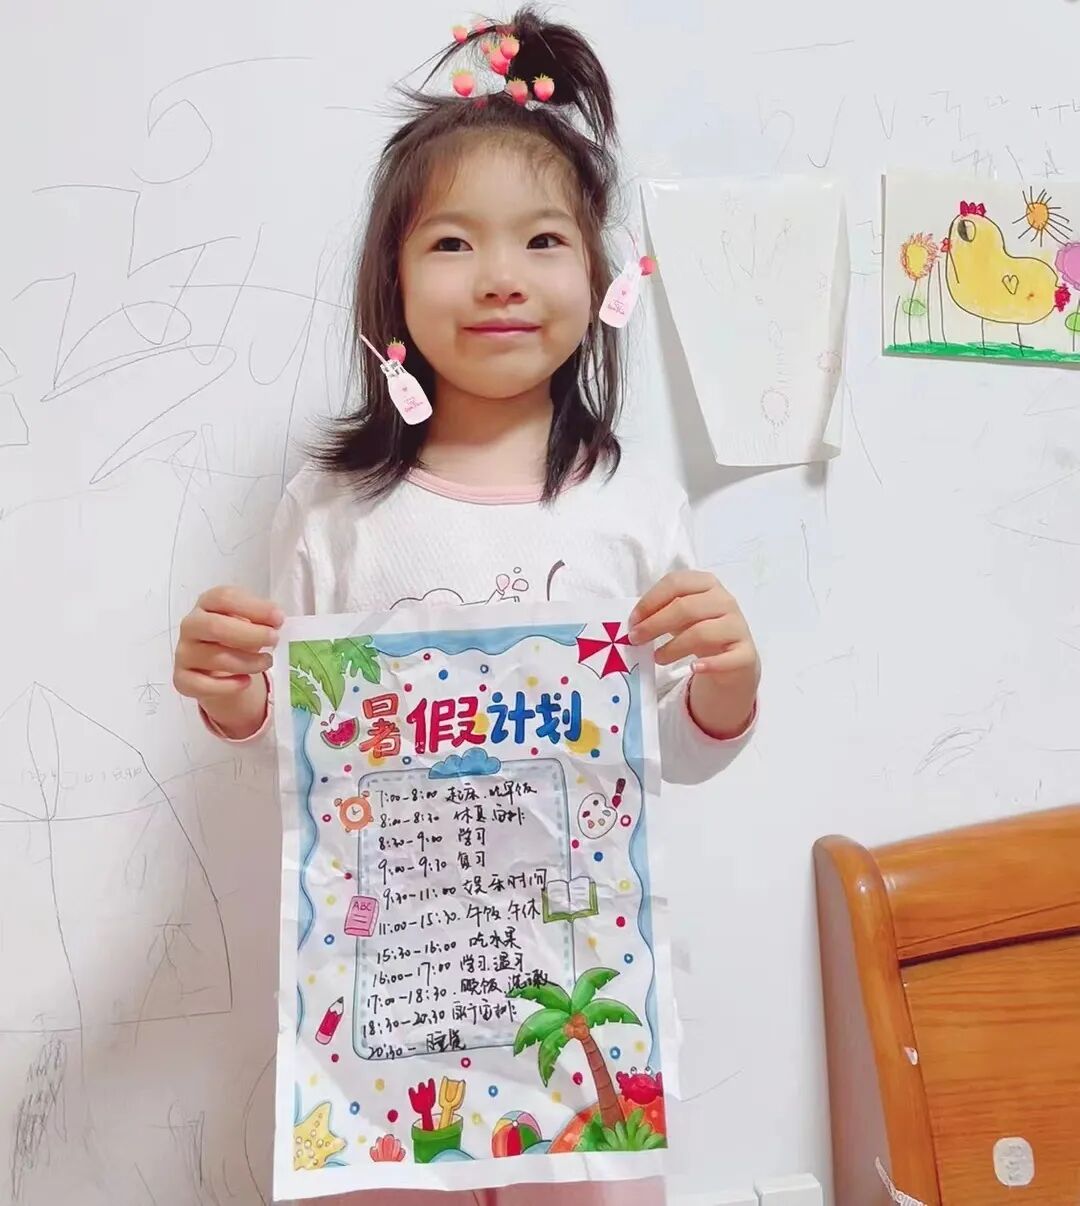 暑假计划
7:00-8:00 起床.吃早饭
8:00-8:30 休息.安排
8:30-9:00 学习
9:00-9:30 复习
9:30-11:00 娱乐时间
11:00-15:30.午饭.午休
15:30-16:00 吃水果
16:00-17:00 学习.温习
17:00-18:30.晚饭.洗漱
18:30-20:30 自行安排
20:30- 睡觉
ABC